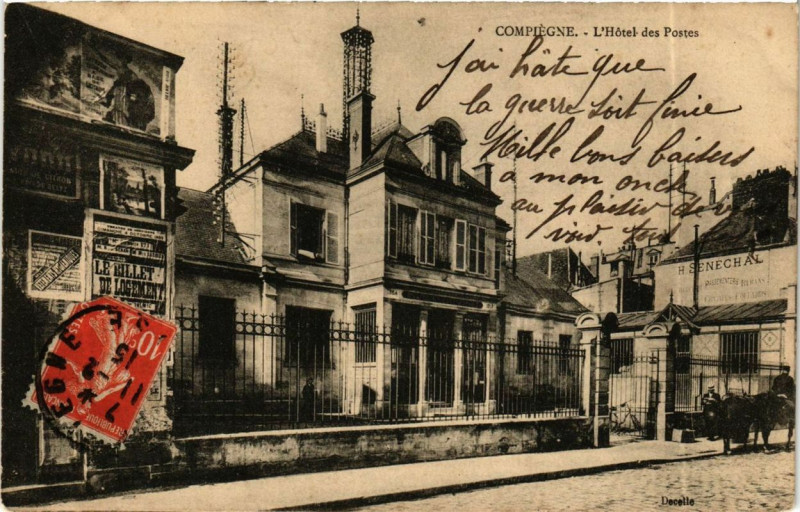 COMPIÈGNE. - L'Hôtel des Postes
J'ai hâte que
la guerre soit finie
Mille bons baisers
a mon oncle
au plaisir de v
voir.
H. SENECHAL
LE BILLET
DE LOGEMENT
10
EGNE
7
11-2
15
Decelle